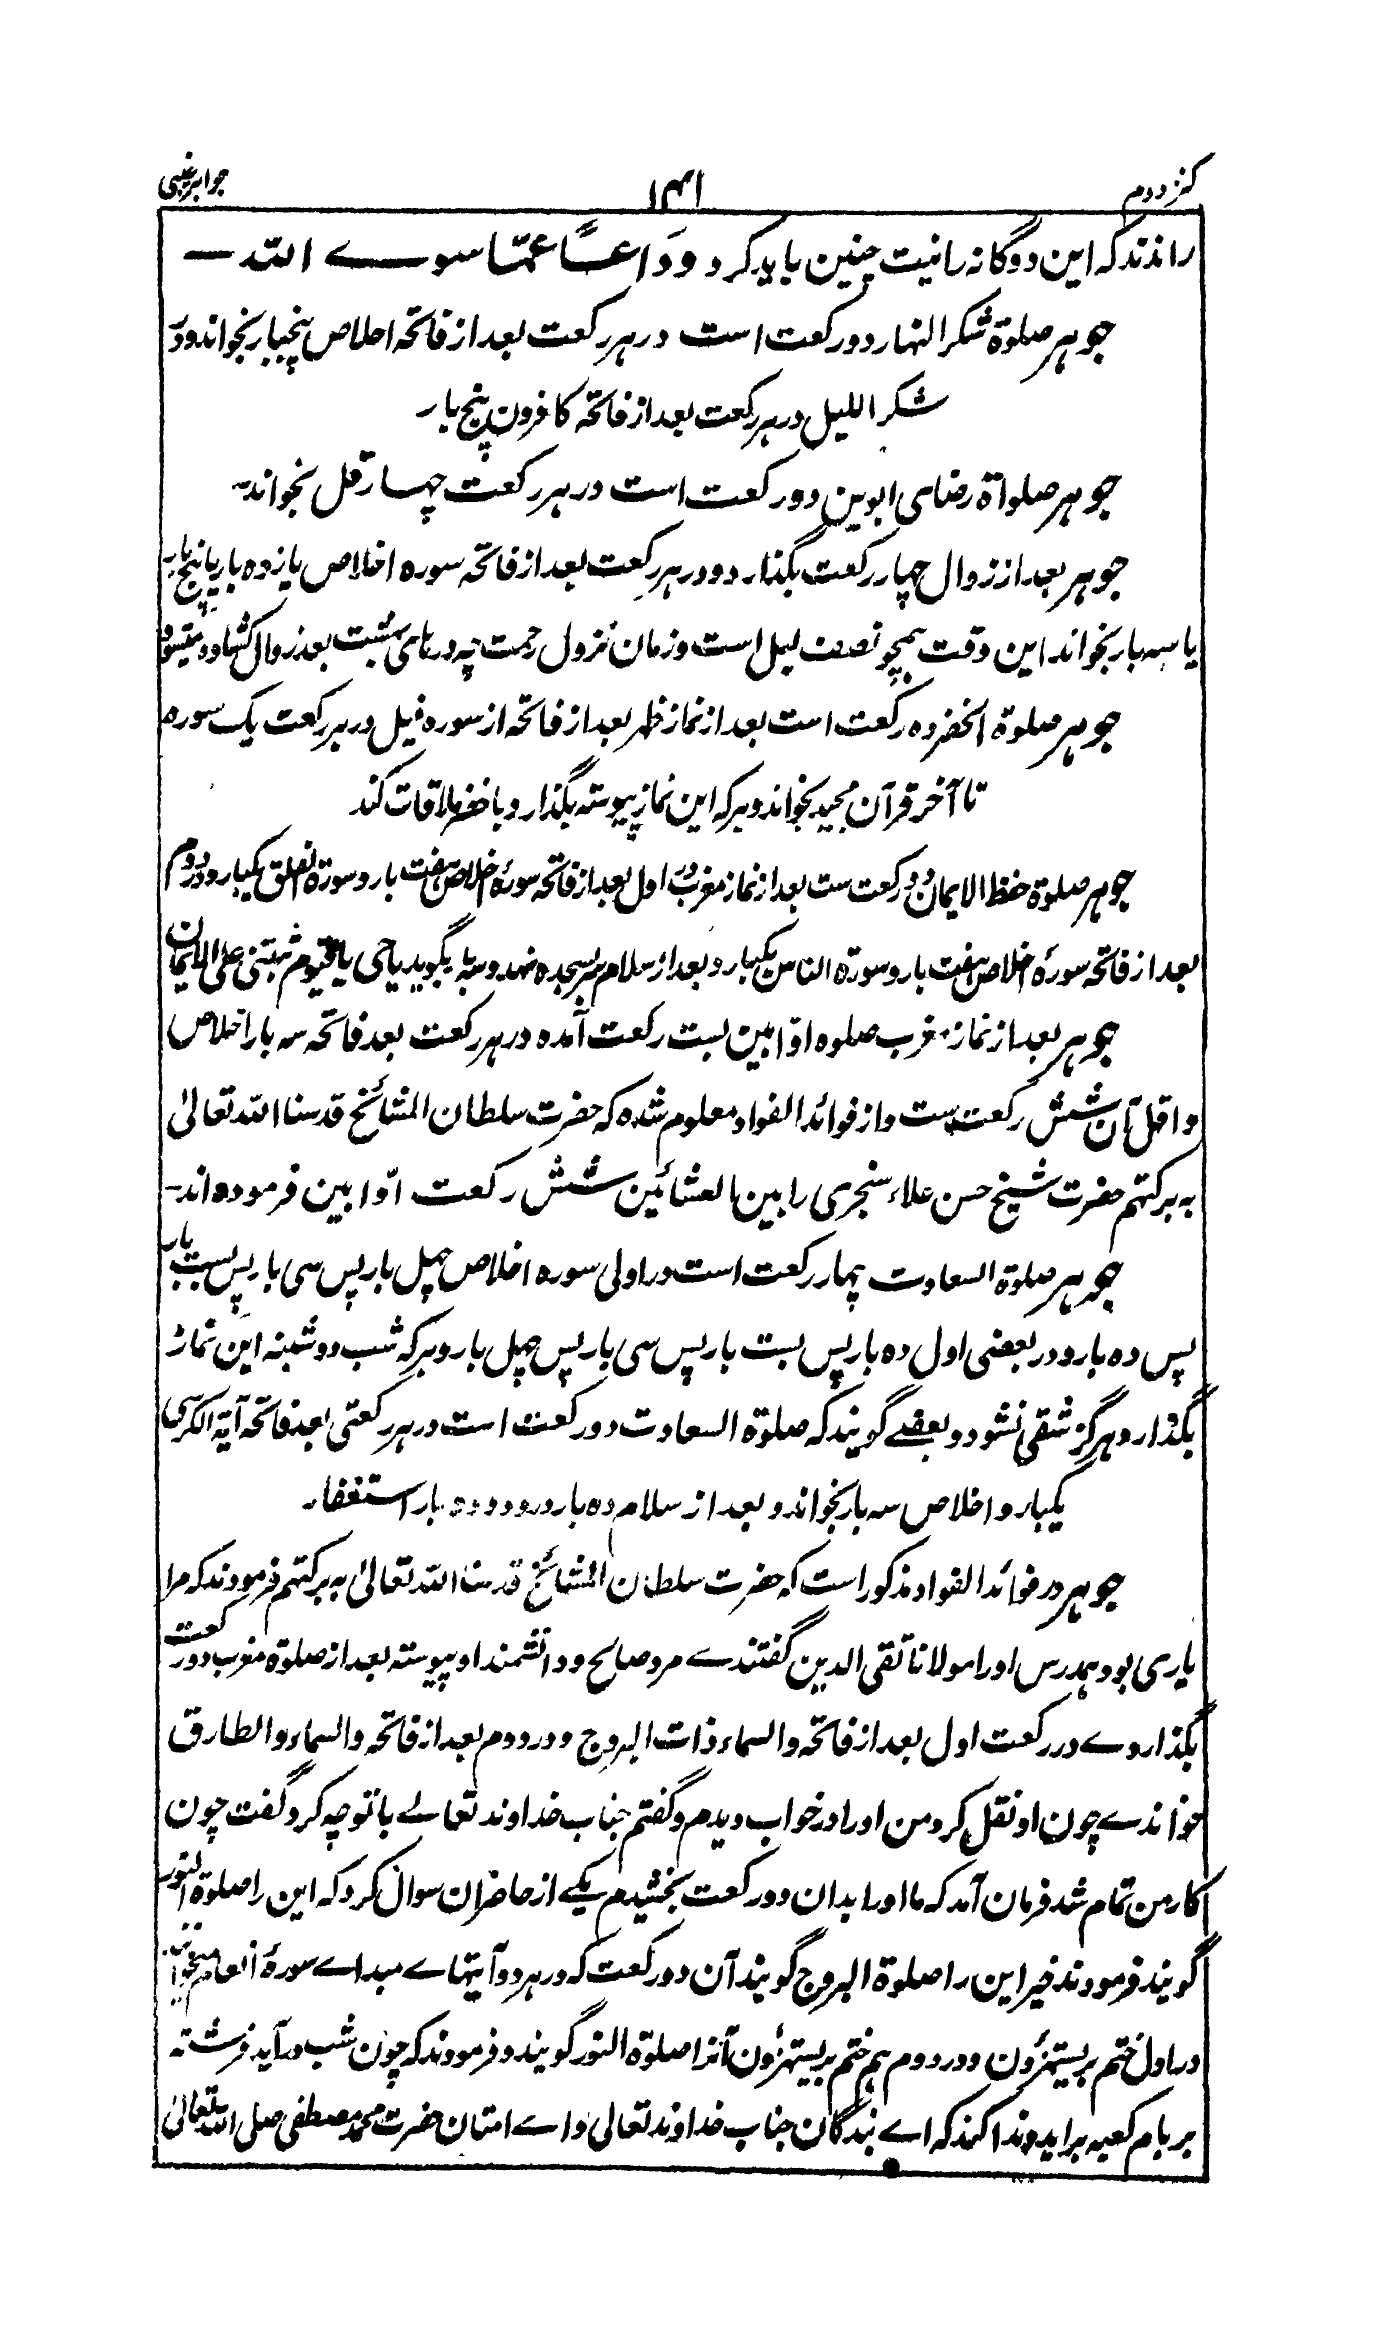 کنز دوم ۱۴۱ جواہر غیبی
راندند کہ این دوگانہ رانیت چنین باید کرد ودَاعًا عمّا سوے اللہ —
جوہر صلوۃ شکر النہار دو رکعت است در ہر رکعت بعد از فاتحہ اخلاص پنجبار بخواند ودر
شکر اللیل در ہر رکعت بعد از فاتحہ کافرون پنج بار
جوہر صلواۃ رضای ابوین دو رکعت است در ہر رکعت چہار قل بخواند
جوہر بعد از زوال چہار رکعت بگذارد و در ہر رکعت بعد از فاتحہ سورہ اخلاص یازدہ بار یا پنج بار
یا سہ بار بخواند این وقت ہمچو نصف لیل است وزمان نزول رحمت چہ درہای بہشت بعد زوال کشادہ میشود
جوہر صلوۃ الخضر دہ رکعت است بعد از نماز ظہر بعد از فاتحہ از سورہ فیل در ہر رکعت یک سورہ
تا آخر قرآن مجید بخواند و ہر کہ این نماز پیوستہ بگذارد با خضر ملاقات کند
جوہر صلوۃ حفظ الایمان دو رکعت ست بعد از نماز مغرب در اول بعد از فاتحہ سورۂ اخلاص ہفت بار و سورۃ الفلق یکبار و در دوم
بعد از فاتحہ سورۂ اخلاص ہفت بار و سورۃ الناس یکبار و بعد از سلام سر بسجدہ نہد و سہ بار بگوید یا حی یا قیوم ثبتنی علی الایمان
جوہر بعد از نماز مغرب صلوہ اوّابین بست رکعت آمدہ در ہر رکعت بعد فاتحہ سہ بار اخلاص
و اقل آن شش رکعت ست و از فوائد الفواد معلوم شدہ کہ حضرت سلطان المشائخ قدسنا اللہ تعالیٰ
بہ برکتہم حضرت شیخ حسن علاء سنجری را بین العشائین شش رکعت اوّابین فرمودہ اند -
جوہر صلوۃ السعادت چہار رکعت است در اولی سورہ اخلاص چہل بار پس سی بار پس بست بار
پس دہ بار و در بعضی اول دہ بار پس بست بار پس سی بار پس چہل بار و ہر کہ شب دوشنبہ این نماز
بگذارد ہرگز شقی نشود و بعضے گویند کہ صلوۃ السعادت دو رکعت است در ہر رکعتی بعد فاتحہ آیۃ الکرسی
یکبار و اخلاص سہ بار بخواند و بعد از سلام دہ بار درود و دہ بار استغفار
جوہر در فوائد الفواد مذکور است کہ حضرت سلطان المشائخ قدسنا اللہ تعالیٰ بہ برکتہم فرمودند کہ مرا
یاری بود ہمدرس او را مولانا تقی الدین گفتندے مرد صالح و دانشمند او پیوستہ بعد از صلوۃ مغرب دو رکعت
بگذاردے در رکعت اول بعد از فاتحہ والسماء ذات البروج و در دوم بعد از فاتحہ والسماء والطارق
خواندے چون او نقل کرد من او را در خواب دیدم و گفتم جناب خداوند تعالے با تو چہ کرد گفت چون
کار من تمام شد فرمان آمد کہ ما او را بدان دو رکعت بخشیدم یکے از حاضران سوال کرد کہ این را صلوۃ النور
گویند فرمودند خیر این را صلوۃ البروج گویند آن دو رکعت کہ در ہر دو آیتہاے مبداے سورۂ انعام میخوانند
در اول ختم بر یستہزؤن و در دوم ہم ختم بر یستہزؤن آنرا صلوۃ النور گویند و فرمودند کہ چون شب در آید فرشتہ
بر بام کعبہ براید و ندا کند کہ اے بندگان جناب خداوند تعالی و اے امتان حضرت محمد مصطفی صلی اللہ تعالیٰ